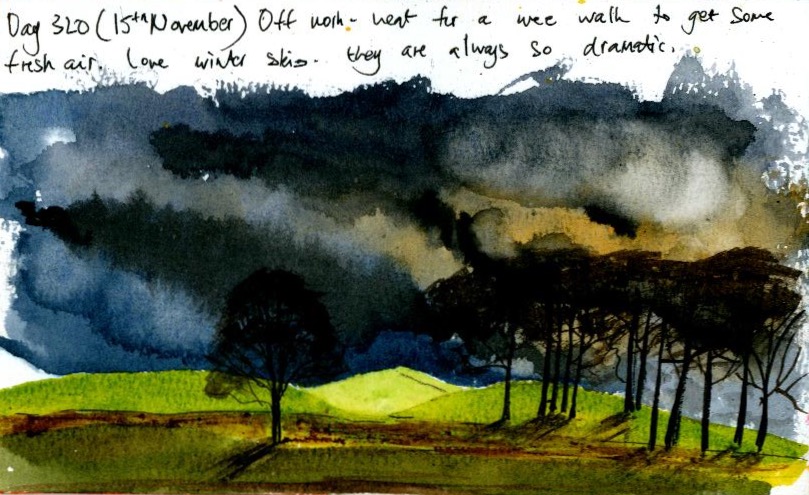 Day 320 (15th November) Off work - went for a wee walk to get some
fresh air. Love winter skies. they are always so dramatic.